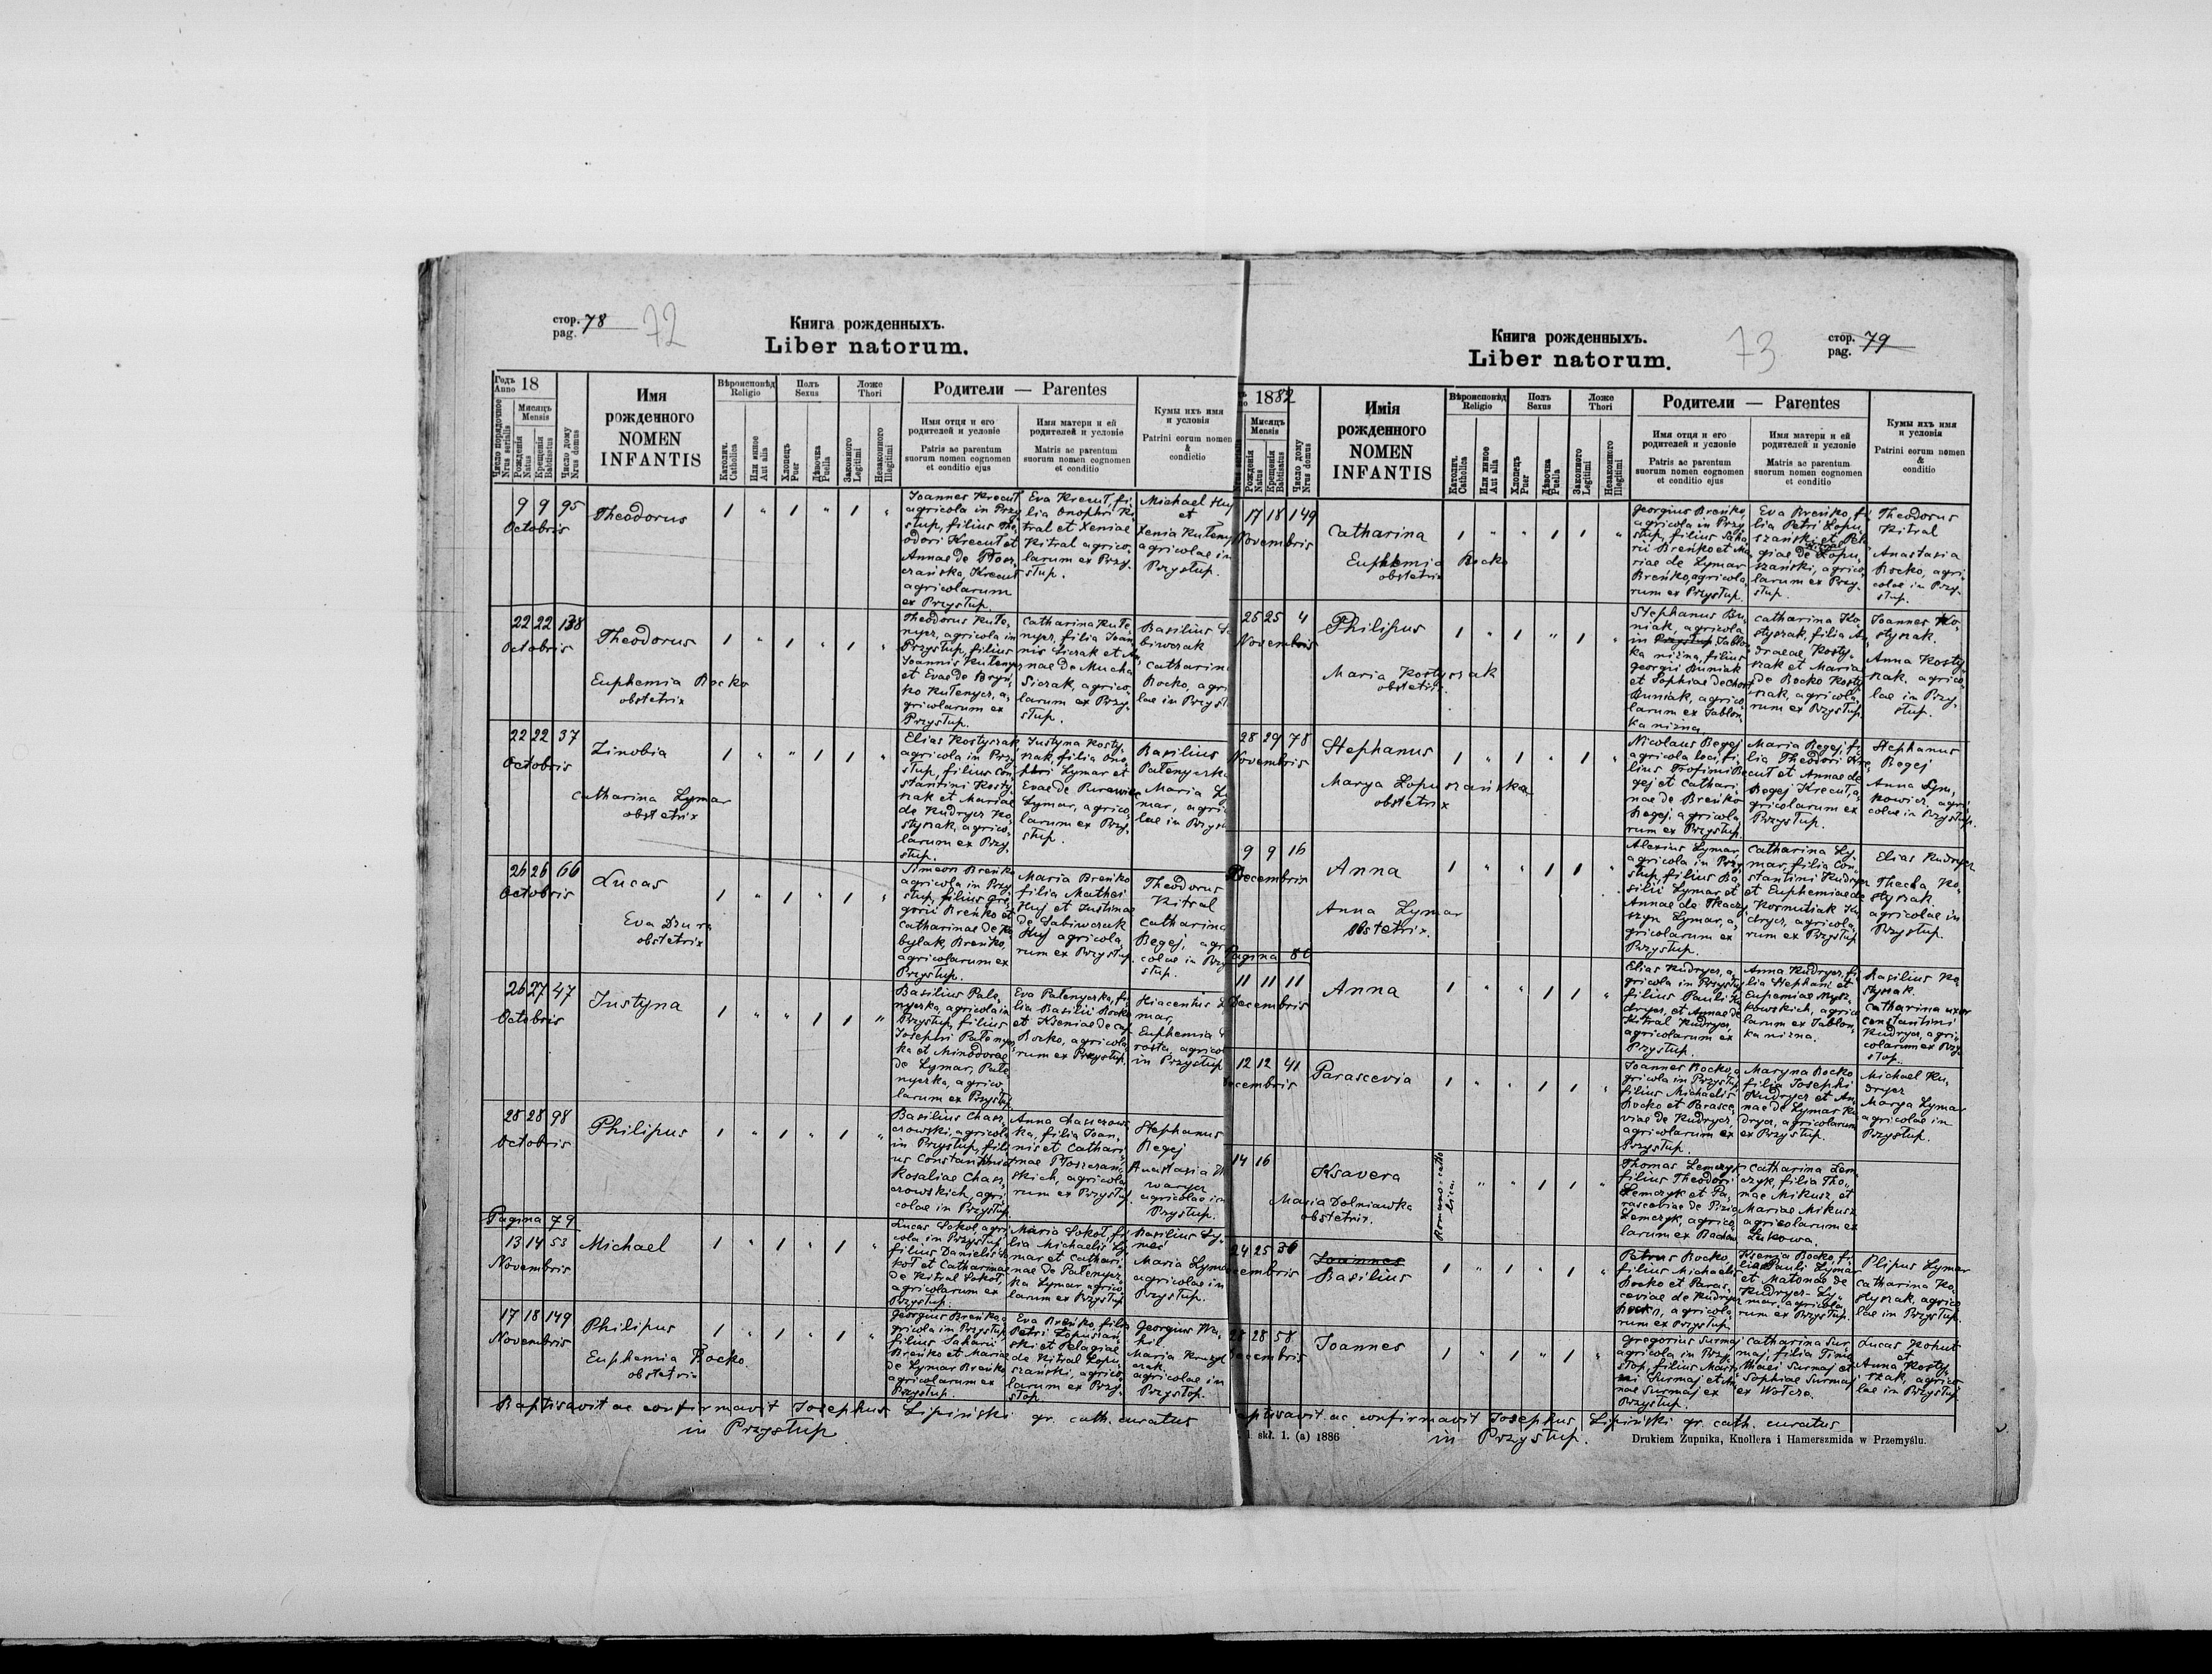 стор. 78
pag.
72
Книга рожденныхъ.
Liber natorum.
Годъ Anno 18
Число порядочное Nrus serialis
Мисяцъ Mensis
Рождения Natus
Крещения Babtisatus
Число дому Nrus domus
Имя рожденного
NOMEN INFANTIS
Вѣроисповѣд Religio
Католич. Catholica
Или иное Aut alia
Полъ Sexus
Хлопець Puer
Дѣвочка Puella
Ложе Thori
Законного Legitimi
Незаконного Illegitimi
Родители — Parentes
Имя отця и его родителей и условіе
Patris ac parentum suorum nomen cognomen et conditio ejus
Имя матери и ей родителей и условіе
Matris ac parentum suorum nomen cognomen et conditio
Кумы ихъ имя и условія
Patrini eorum nomen & condictio
9 9 95
Octobris
Theodorus
Joannes Krecuł
agricola in Przy
stup, filius The
odori Krecuł et
Annae de Płosz
czańska, Krecuł
agricolarum
ex Przystup.
Eva Krecuł, fi
lia Onophri Ki
tral et Xeniae
Kitral agrico
larum ex Przy
stup.
Michael Huj
et
Xenia Kułeny
agricolae in
Przystup.
22 22 138
Octobris
Theodorus
Euphemia Rocko
obstetrix
Theodorus Kułe
nycz, agricola in
Przystup, filius
Joannis Kułenycz
et Evae de Bryń
ko Kułenycz, a
gricolarum ex
Przystup.
Catharina Kułe
nycz, filia Joan
nis Siczak et An
nae de Mucha
Siczak, agrico
larum ex Przy
stup.
Basilius Sa
biwczak
Catharina
Rocko, agri
lae in Przyst
22 22 37
Octobris
Zinobia
Catharina Lymar
obstetrix
Elias Kostyszak
agricola in Przy
stup, filius Con
stantini Kosty
szak et Mariae
de Kudrycz Ko
styszak, agrico
larum ex Przy
stup.
Justyna Kosty
szak, filia Ono
phri Lymar et
Evae de
Lymar, agrico
larum ex Przy
stup.
Basilius
Pałenyczka
Maria Ly
mar, agri
lae in Przyst
26 26 66
Octobris
Lucas
Eva Dzura
obstetrix
Simeon Breńko
agricola in Przy
stup, filius Gre
gorii Breńko et
Catharinae de Ko
bylak, Breńko,
agricolarum ex
Przystup.
Maria Breńko
filia Mathei
Huj et Justinae
de Sabiwczak
Huj agricola
rum ex Przystup.
Theodorus
Kitral
Catharina
Begej, agr
colae in Przy
stup.
26 27 47
Octobris
Justyna
Basilius Pałe
nyczka, agricola in
Przystup, filius
Josephi Pałenycz
ka et Minodorae
de Lymar, Pałe
nyczka, agrico
larum ex Przystup
Eva Pałenyczka, fi
lia Basilii Rocko
et Kseniae de
Rocko, agricola
rum ex Przystup.
Hiacentus Ly
mar,
Euphemia
agrico
in Przystup
28 28 98
Octobris
Philipus
Basilius Chasz
czowski, agricola
in Przystup, fili
us Constantini et
Rosaliae Chasz
czowskich, agri
colae in Przystup.
Anna Chaszczows
ka, filia Joan
nis et Cathari
nae Płoszczań
skich, agricola
rum ex Przystup.
Stephanus
Begej
Anastasia
warycz
agricolae in
Przystup.
Pagina 79
13 14 53
Novembris
Michael
Lucas Sokoł, agri
cola in Przystup
filius Danielis So
koł et Catharinae
de Kitral Sokoł,
agricolarum ex
Przystup.
Maria Sokoł, fi
lia Michaelis Ly
mar et Cathari
nae de Pałenycz
ka Lymar agrico
larum ex Przystup
Basilius Ly
mar
Maria Lymar
agricolae in
Przystup.
17 18 149
Novembris
Philipus
Euphemia Rocko
obstetrix
Georgius Breńko, a
gricola in Przystup
filius Zaharii
Breńko et Mariae
de Lymar Breńko
agricolarum ex
Przystup.
Eva Breńko, filia
Petri Łopuszań
ski et Pelagiae
de Kitral Łopu
szański, agrico
larum ex Przy
stup.
Georgius
Maria
agricolae in
Przystup.
Baptisavit ac confirmavit Josephus Lipiński gr. cath. curatus
in Przystup
Книга рожденныхъ.
Liber natorum.
73
стор. 79
pag.
1882
Мисяцъ Mensis
Рожденія Natus
Крещенія Babtisatus
Число дому Nrus domus
Имія рожденного
NOMEN INFANTIS
Вѣроисповѣд Religio
Католич. Catholica
Или иное Aut alia
Полъ Sexus
Хлопець Puer
Дѣвочка Puella
Ложе Thori
Законного Legitimi
Незаконного Illegitimi
Родители — Parentes
Имя отця и его родителей и условіе
Patris ac parentum suorum nomen cognomen et conditio ejus
Имя матери и ей родителей и условіе
Matris ac parentum suorum nomen cognomen et conditio
Кумы ихъ имя и условія
Patrini eorum nomen & conditio
17 18 149
Novembris
Catharina
Euphemia Rocko
obstetrix
Georgius Breńko,
agricola in Przy
stup, filius Zaha
rii Breńko et Ma
riae de Lymar
Breńko, agricola
rum ex Przystup.
Eva Breńko, fi
lia Petri Łopu
szański et Pela
giae de Kitral Łopu
szański, agrico
larum ex Przy
stup.
Theodorus
Kitral
Anastasia
Rocko, agri
colae in Przy
stup.
25 25 4
Novembris
Philipus
Maria Kostyszak
obstetrix.
Stephanus Bu
niak, agricola
in Przystup Jabłon
ka niżna, filius
Georgii Buniak
et Sophiae de
Buniak, agrico
larum ex Jabłon
ka niżna
Catharina Ko
styszak, filia An
dreae Kosty
szak et Maria
de Rocko Kosty
szak, agricola
rum ex Przystup.
Joannes Ko
styszak.
Anna Kosty
szak, agrico
lae in Przy
stup.
28 29 78
Novembris
Stephanus
Marya Łopuszańska
obstetrix
Nicolaus Begej
agricola loci, fi
lius Trofimi Be
gej et Cathari
nae de Breńko
Begej, agricola
rum ex Przystup.
Maria Begej, fi
lia Theodori Kre
cuł et Annae de
Begej Krecuł, a
gricolarum ex
Przystup.
Stephanus
Begej
Anna Sym
kowicz, agri
colae in Przystup.
9 9 16
Decembris
Anna
Anna Lymar
obstetrix.
Alexius Lymar,
agricola in Przy
stup, filius Ba
silii Lymar et
Annae de Tkaczy
szyn Lymar, a
gricolarum ex
Przystup.
Catharina Ly
mar, filia Con
stantini Kudrycz
et Euphemiae de
Kosmutiak Ku
drycz, agricola
rum ex Przystup.
Elias Kudrycz
Thecla Ko
styszak
agricolae in
Przystup.
Pagina 80
11 11 11
Decembris
Anna
Elias Kudrycz, a
gricola in Przystup
filius Pauli Ku
drycz, et Annae de
Kitral Kudrycz,
agricolarum ex
Przystup.
Anna Kudrycz, fi
lia Stephani et
Euphemiae Mysz
kowskich, agrico
larum ex Jabłon
ka niżna.
Basilius Ko
styszak.
Catharina uxor
Constantini
Kudrycz, agri
colarum ex Przy
stup.
12 12 41
Decembris
Parascevia
Joannes Rocko, a
gricola in Przystup
filius Michaelis
Rocko et Parasce
viae de Kudrycz,
agricolarum ex
Przystup.
Maryna Rocko
filia Josephi
Kudrycz et An
nae de Lymar Ku
drycz, agricolarum
ex Przystup.
Michael Ku
drycz
Marya Lymar
agricolae in
Przystup.
14 16
Ksavera
Maria Dolniawska
obstetrix.
Romano-catho
lica.
Thomas Lemczyk
filius Theodori
Lemczyk et Pa
rasceviae de
Lemczyk, agrico
larum ex Bachów
Catharina Lem
czyk, filia Tho
mae Mikusz et
Mariae Mikusz
agricolarum ex
Łukowa.
24 25 36
Decembris
Joannes
Basilius
Petrus Rocko
filius Michaelis
Rocko et Paras
ceviae de Kudrycz
Rocko, agricola
rum ex Przystup
Ksenia Rocko, fi
lia Pauli Lymar
et Matonae de
Kudrycz-Ly
mar, agricola
rum ex Przystup.
Plipus Lymar
Catharina Ko
styszak, agrico
lae in Przystup.
28 28 58
Decembris
Joannes
Gregorius Surmaj
agricola in Przy
stup, filius Marti
ni Surmaj et An
nae Surmaj ex
Przystup.
Catharina Sur
maj, filia Timo
thaei Surmaj et
Sophiae Surmaj
ex Wołcza.
Lucas Kohut
et
Anna Kosty
szak, agrico
lae in Przystup
aptisavit ac confirmavit Josephus Lipiński gr. cath. curatus
in Przystup.
l. skł. 1. (a) 1886
Drukiem Żupnika, Knollera i Hamerszmida w Przemyślu.